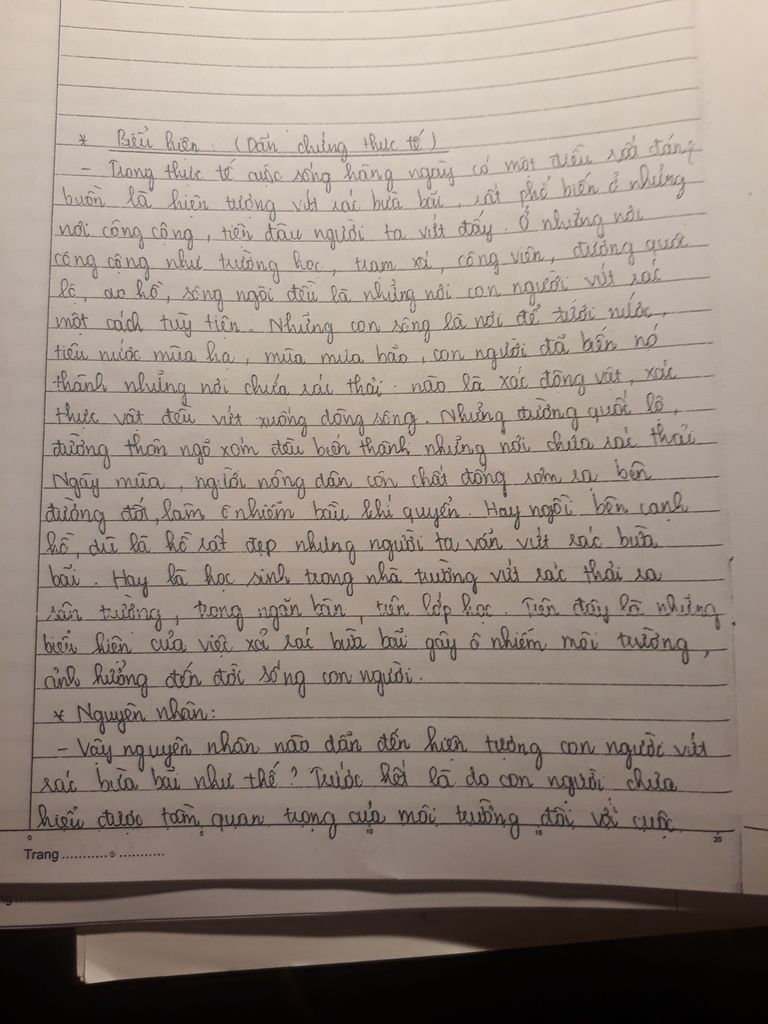 * Biểu hiện: (Dẫn chứng thực tế)
- Trong thực tế cuộc sống hằng ngày có một điều rất đáng
buồn là hiện tượng vứt rác bừa bãi, rất phổ biến ở những
nơi công cộng, tiện đâu người ta vứt đấy. Ở những nơi
công cộng như trường học, trạm xá, công viên, đường quốc
lộ, ao hồ, sông ngòi đều là những nơi con người vứt rác
một cách tuỳ tiện. Những con sông là nơi để tưới nước,
tiêu nước mùa hạ, mùa mưa bão, con người đã biến nó
thành những nơi chứa rác thải. nào là xác động vật, xác
thực vật đều vứt xuống dòng sông. Những đường quốc lộ,
đường thôn ngõ xóm đều biến thành những nơi chứa rác thải
Ngày mùa, người nông dân còn chất đống rơm ra bên
đường đốt, làm ô nhiễm bầu khí quyển. Hay ngồi bên cạnh
hồ, dù là hồ rất đẹp nhưng người ta vẫn vứt rác bừa
bãi. Hay là học sinh trong nhà trường vứt rác thải ra
sân trường, trong ngăn bàn, trên lớp học. Trên đây là những
biểu hiện của việc xả rác bừa bãi gây ô nhiễm môi trường,
ảnh hưởng đến đời sống con người.
* Nguyên nhân:
- Vậy nguyên nhân nào dẫn đến hiện tượng con người vứt
rác bừa bãi như thế? Trước hết là do con người chưa
hiểu được tầm quan trọng của môi trường đối với cuộc
0 5 10 15 20
Trang